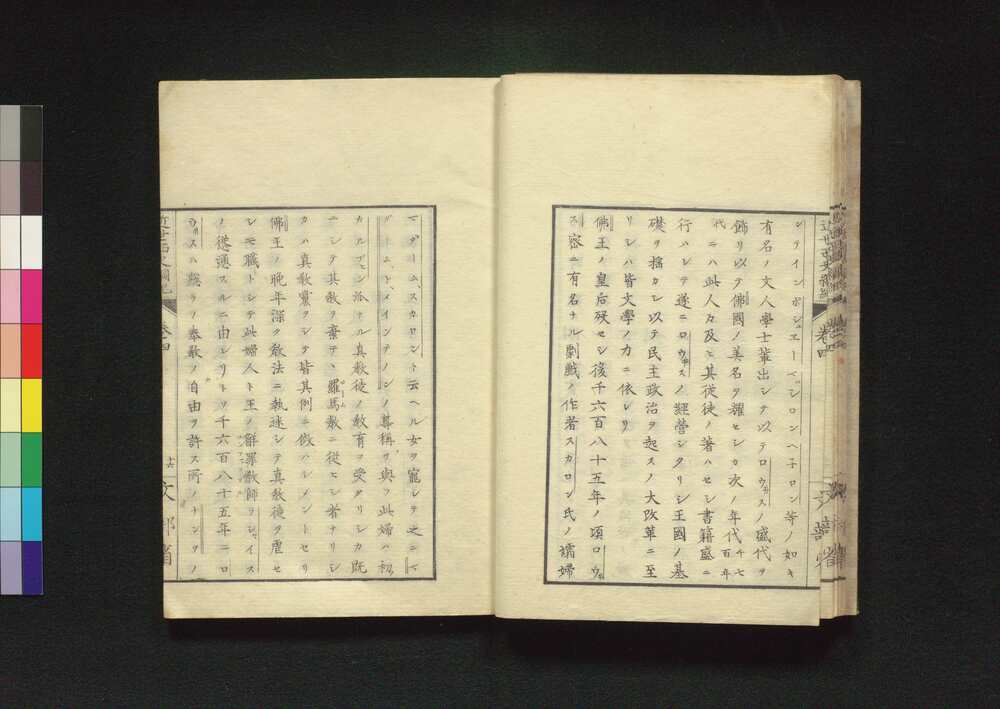 有名ノ文人學士輩出シテ以テロウ井スノ盛代ヲ
飾リ以テ佛國ノ美名ヲ耀セシカ次ノ年代千七百年
代ニハ此人々及ヒ其従徒ノ著ハセシ書籍盛ニ
行ハレテ遂ニロウ井スノ經營シタリシ王國ノ基
礎ヲ揺カシ以テ民主政治ヲ起スノ大改革ニ至
リシハ皆文學ノ力ニ依レリ
佛王ノ皇后殁セシ後千六百八十五年ノ頃ロウ井
ス密ニ有名ナル劇戯ノ作者スカロン氏ノ孀婦
マダーム、スカロント云ヘル女ヲ寵シ之ニマ
ダーム、ド、メインテノンノ尊稱ヲ與フ此婦ハ初
カルブ井ン派ナル真教徒ノ教育ヲ受タリシカ既
ニシテ其教ヲ棄テ、羅馬教ニ従ヒシ者ナリシ
カハ真教黨ヲシテ皆其例ニ傚ハシメントセリ
佛王ノ晩年深ク教法ニ執迷シテ真教徒ヲ虐セ
シモ職トシテ此婦人ト王ノ觧罪教師
ノ慫慂スルニ由レリトソ千六百八十五年ニロ
ウ井スハ懇ノ奉教ノ自由ヲ許ス所ノナンツノ
卷四
十六
文部省